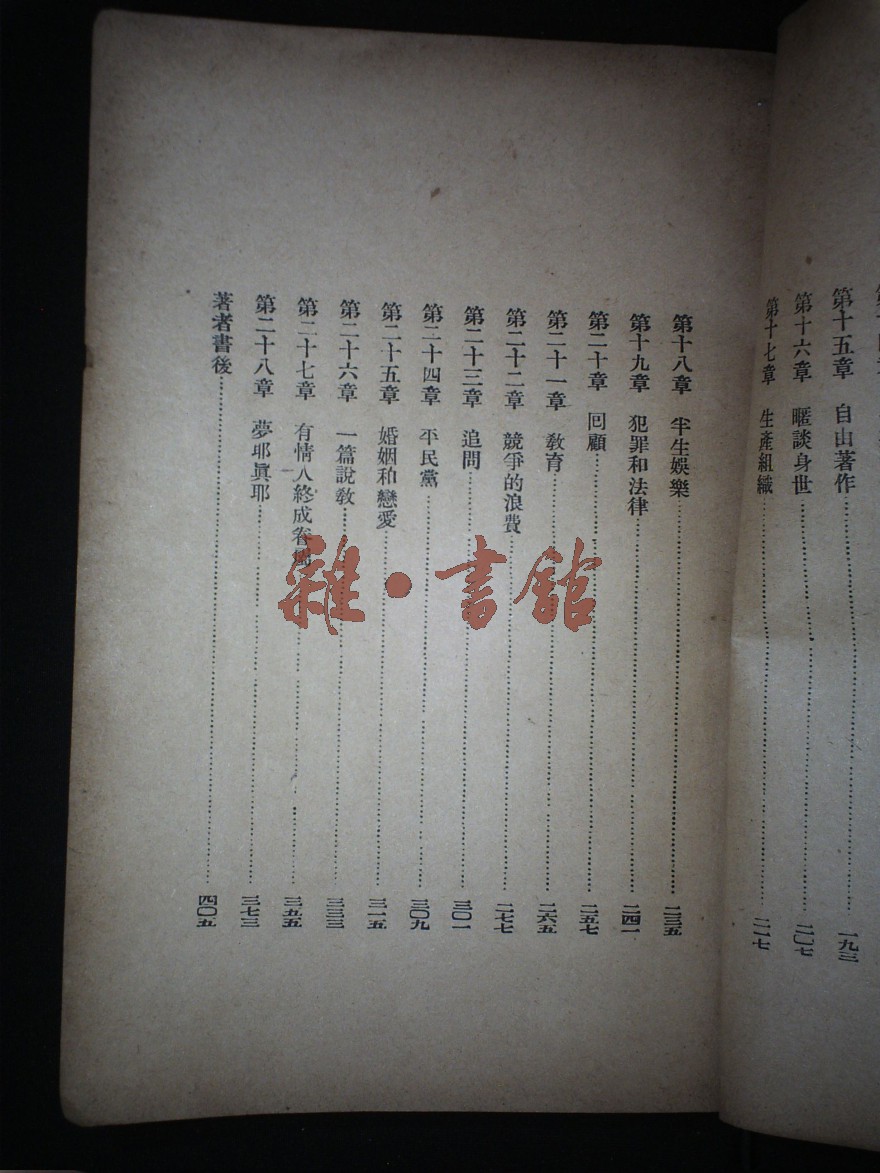 第十五章 自由著作 一九三
第十六章 暱談身世 二〇七
第十七章 生產組織 二一七
第十八章 半生娛樂 二三五
第十九章 犯罪和法律 二四一
第二十章 回顧 二五七
第二十一章 敎育 二六五
第二十二章 競爭的浪費 二七七
第二十三章 追問 三〇一
第二十四章 平民黨 三〇九
第二十五章 婚姻和戀愛 三一五
第二十六章 一篇說敎 三三三
第二十七章 有情人終成眷屬 三五五
第二十八章 夢耶眞耶 三七三
著者書後 四〇五
雜·書館